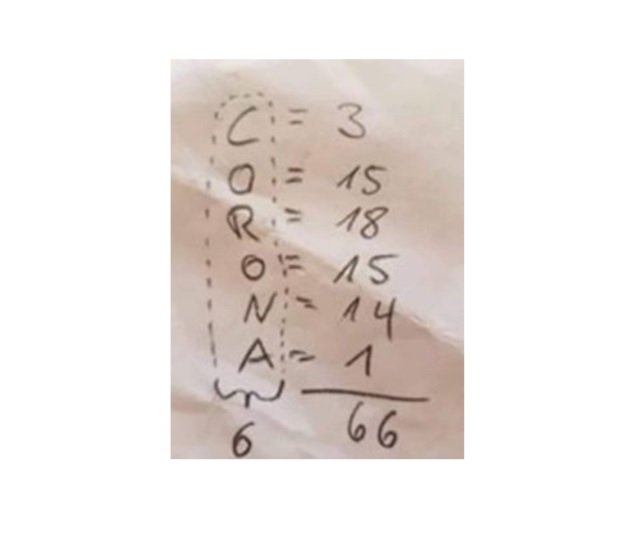 C = 3
O = 15
R = 18
O = 15
N = 14
A = 1
6 66